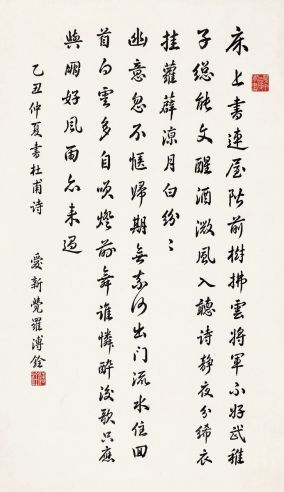 床上书连屋阶前树拂云将军不好武稚
子总能文醒酒微风入听诗静夜分绤衣
挂萝薜凉月白纷纷
幽意忽不惬归期无奈何出门流水住回
首白云多自笑灯前舞谁怜醉后歌只应
与朋好风雨亦来过
乙丑仲夏书杜甫诗
爱新觉罗溥佺